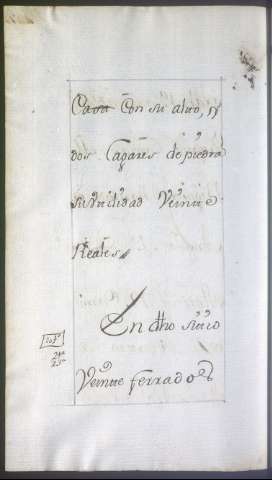 Casa Con su alto, y
dos Lagares de piedra
su utilidad Veinte
Reales
En dho sitio
Veinte ferrados